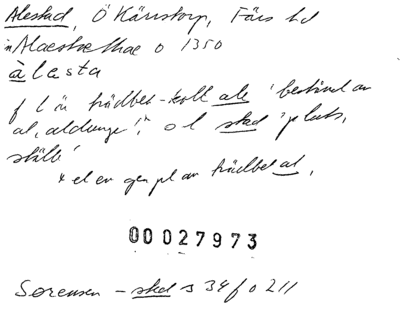 Alestad, Ö Kärrstorp, Färs hd
in Alaestathae o 1350
àlesta
f l är trädbet-koll ale 'bestånd av
al, aldunge',* o l stad 'plats,
ställe'
* el ev gen pl av trädbet al,
00027973
Sørensen – sted s 34 f o 211